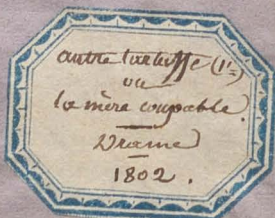 autre tartuffe (l')
ou
la mère coupable.
Drame
1802.